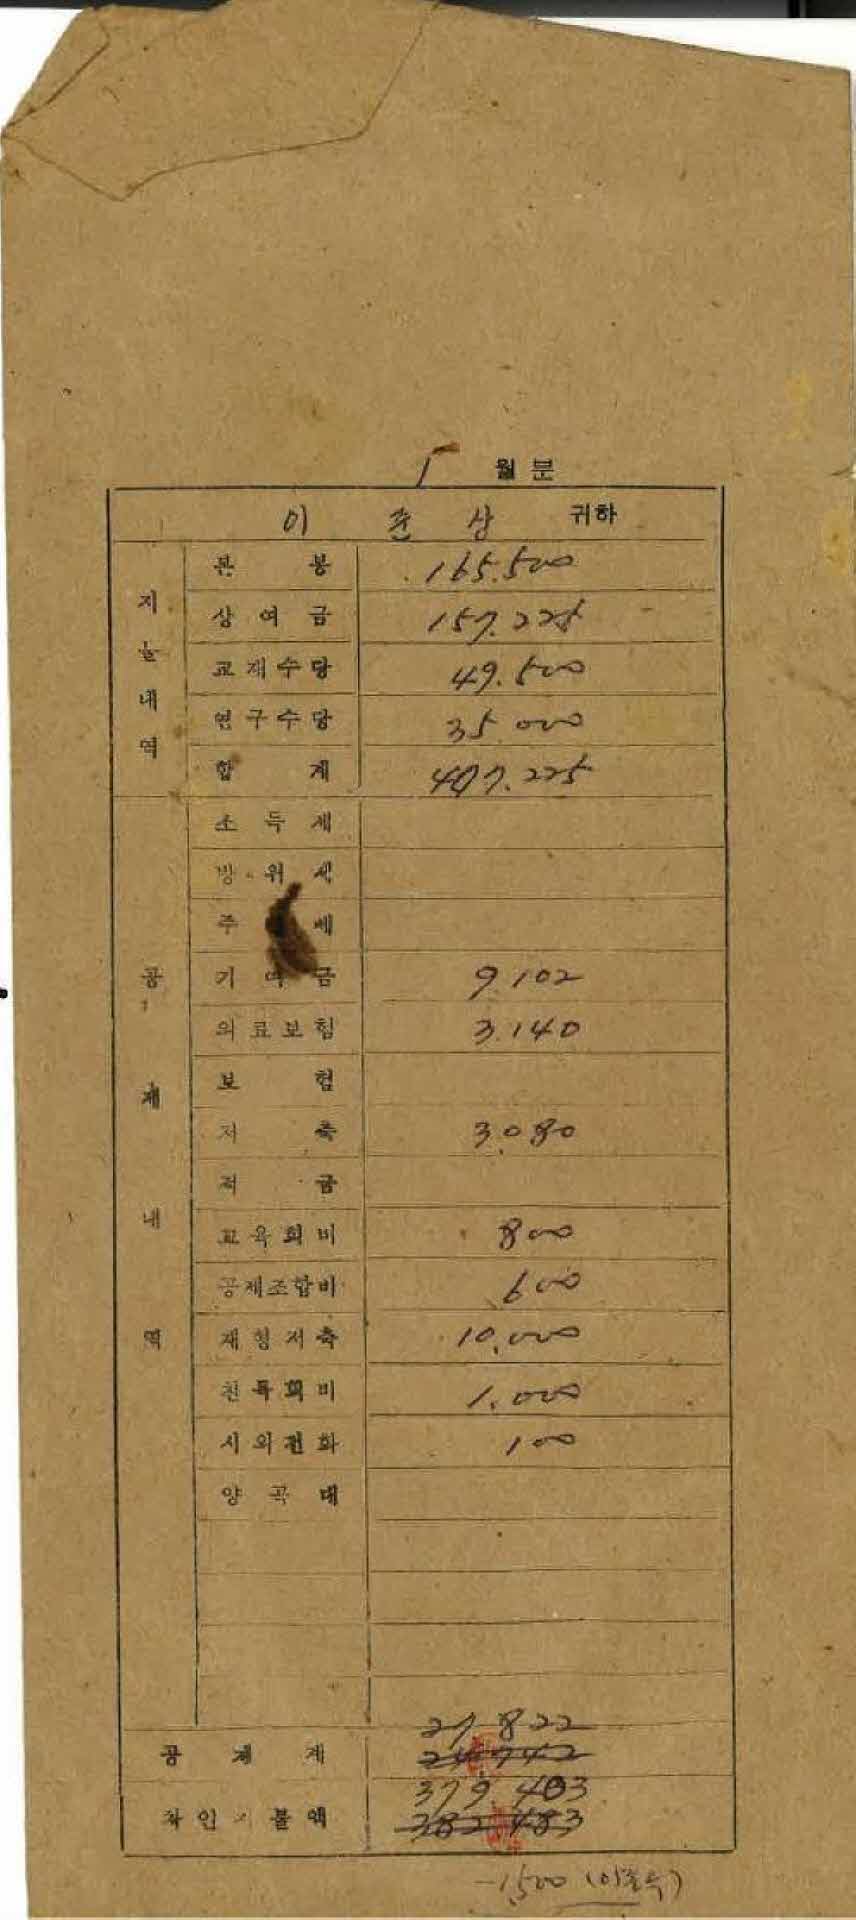 1 월분
이 준 상 귀하
지출내역
본 봉 165.500
상 여 금 157.225
교재수당 49.500
연구수당 35.000
합 계 407.225
공제내역
소 득 세
방 위 세
주
기 여 금 9.102
의료보험 3.140
보 험
저 축 3.080
적 금
교육회비 800
공제조합비 600
재형저축 10.000
친목회비 1.000
시외전화 100
양 곡 대
27.822
공 제 계 24.742
379.403
차인지불액 382.483
-1,500